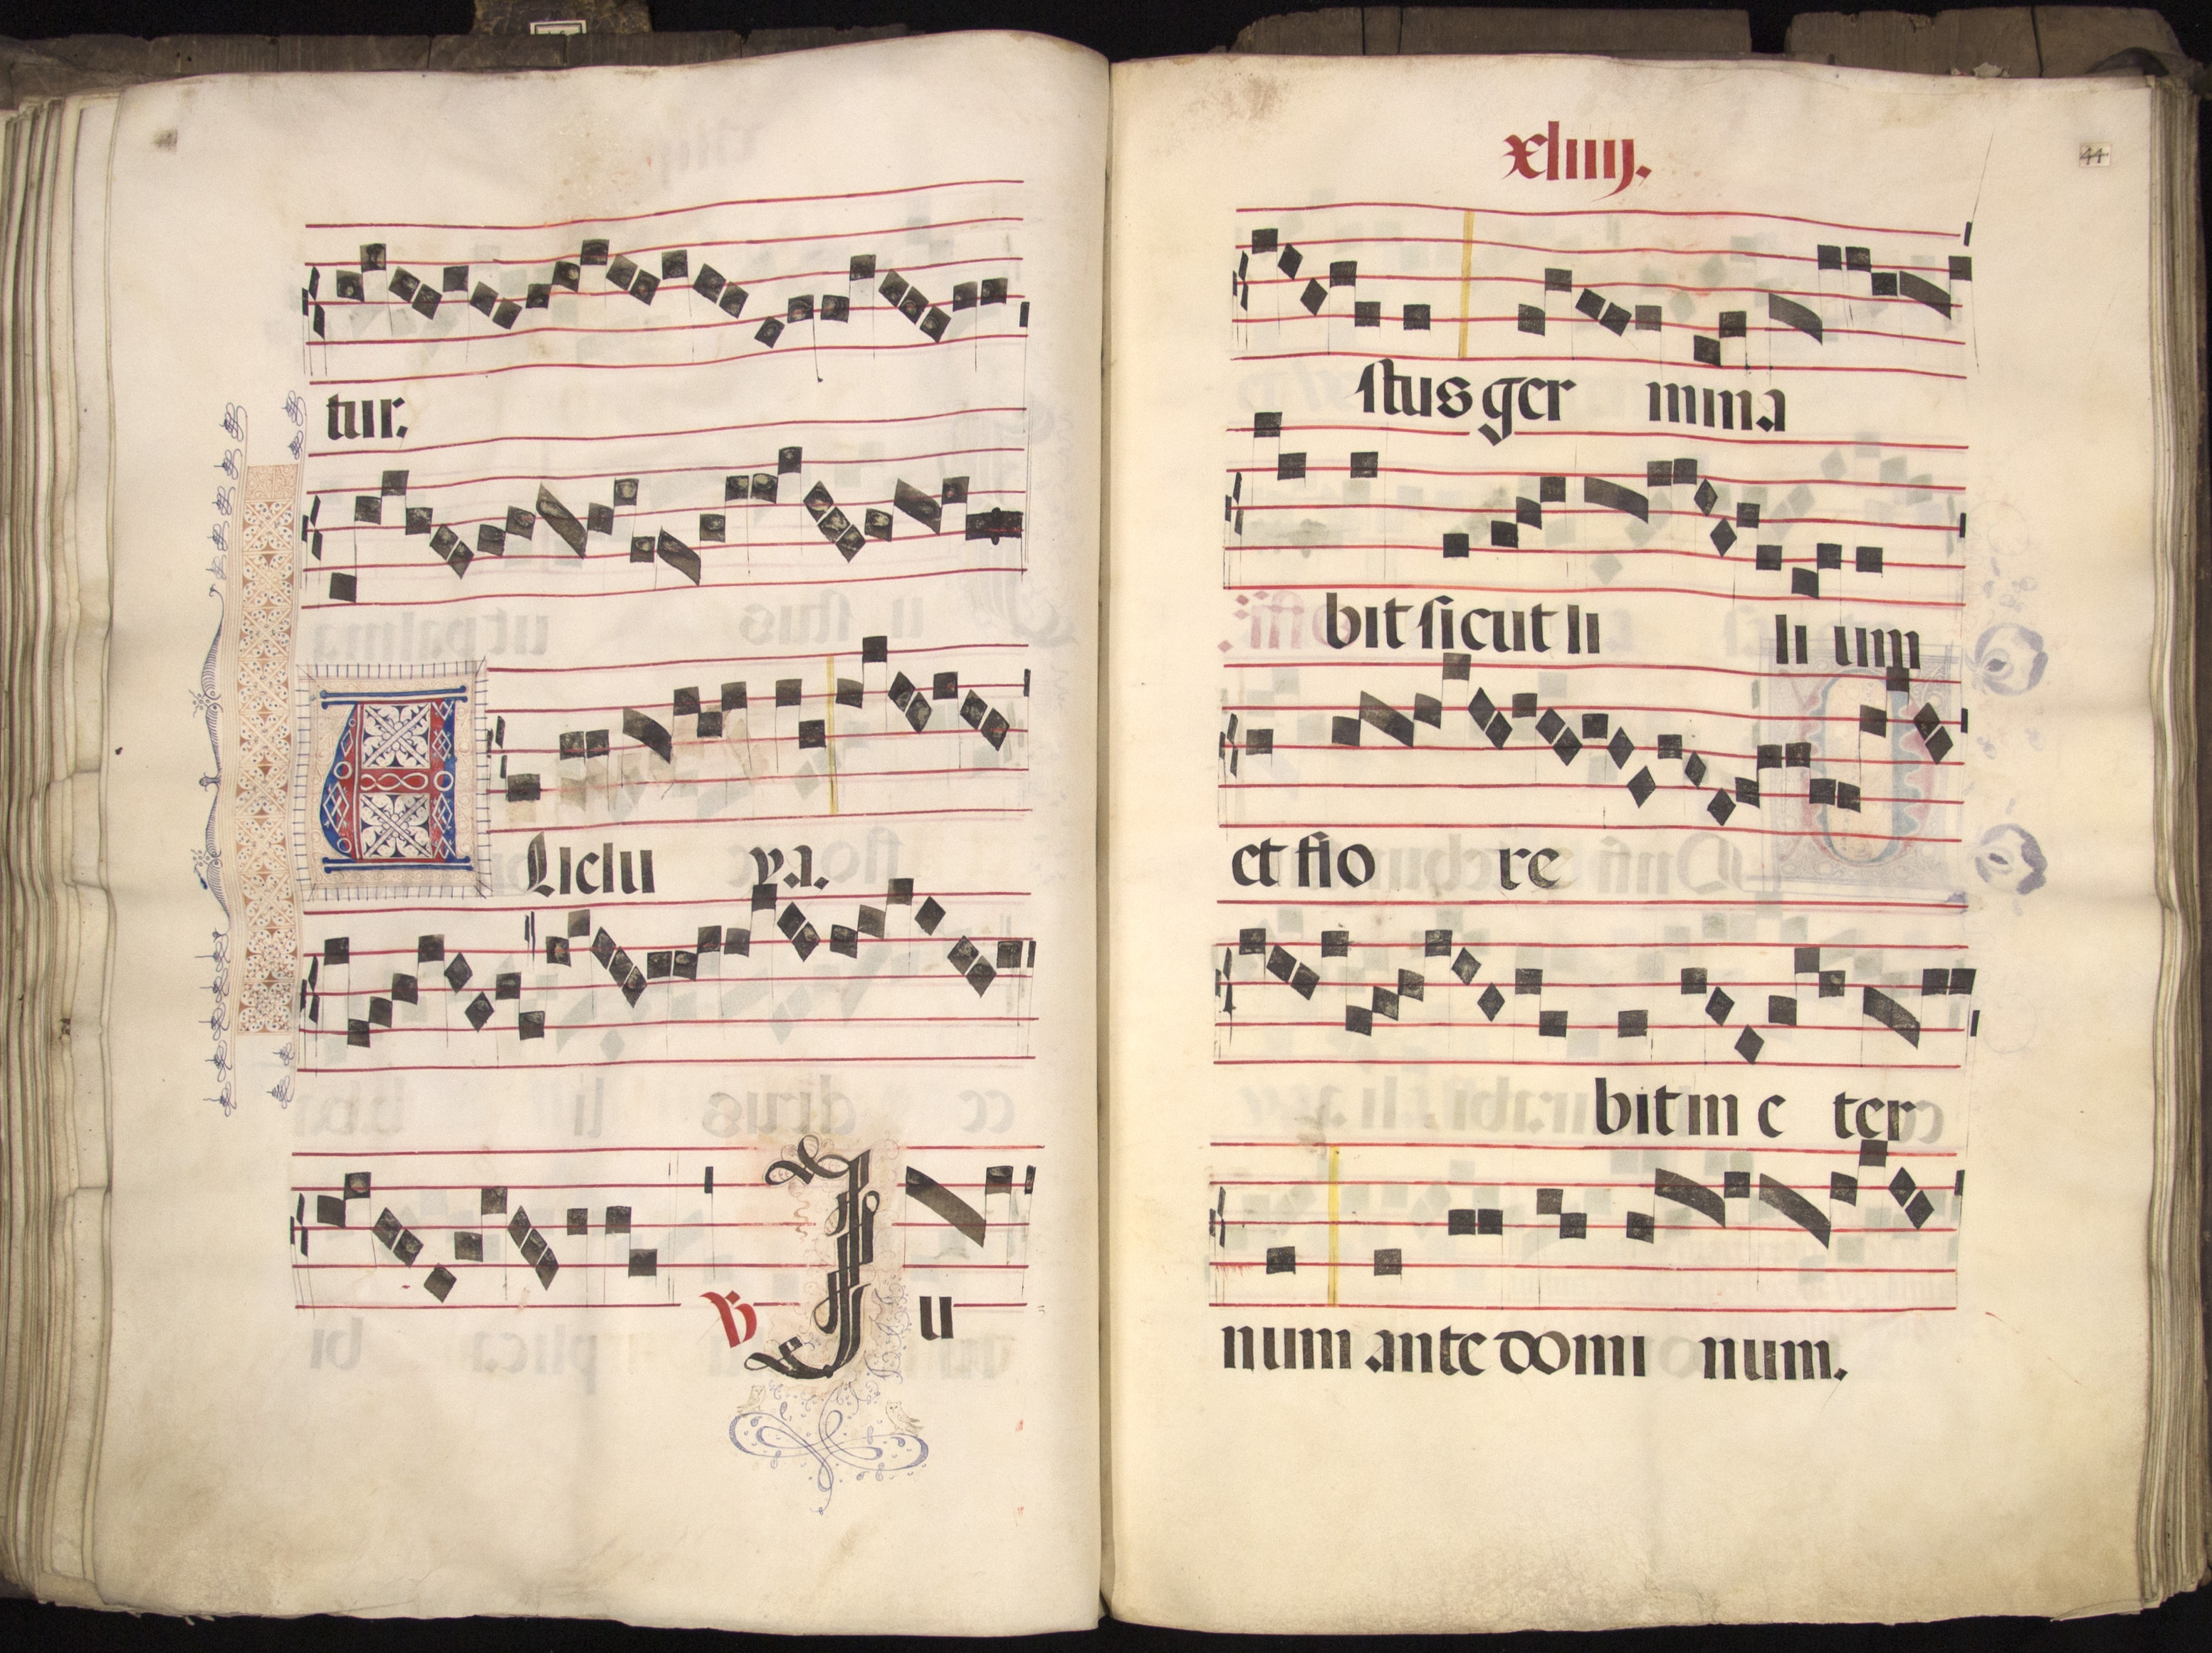 tur.
ALlelu ya.
V Ju
xliiij.
44
stus ger mina
bit sicut li li um
et flo re
bit in e ter
num ante domi num.